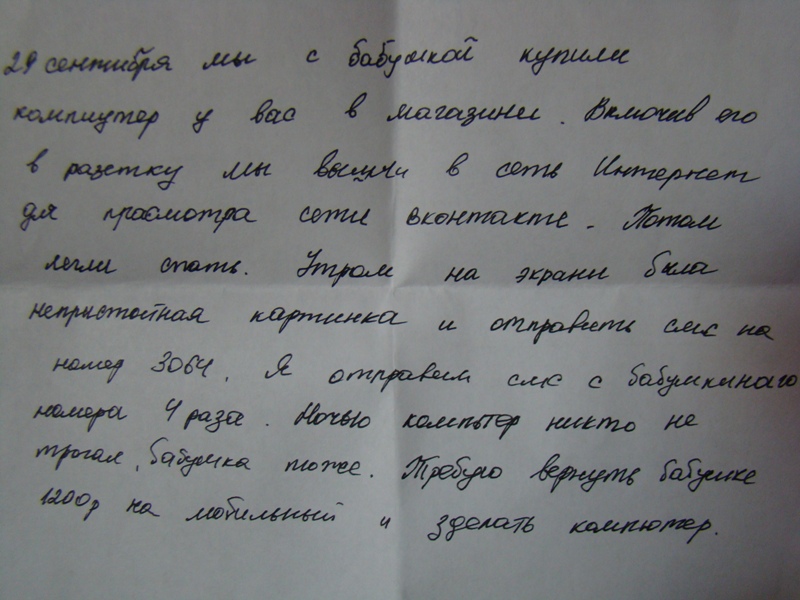 29 сентибря мы с бабушкой купили
компиутер у вас в магазини. Включив его
в разетку мы вышли в сеть Интернет
для прасмотра сети вконтакте. Потом
легли спать. Утром на экрани была
непристойная картинка и отправить смс на
номер 3064. Я отправил смс с бабушкинаго
номера 4 раза. Ночью компьтер никто не
трогал, бабушка тоже. Требую вернуть бабушке
1200р на мобильный и зделать компютер.